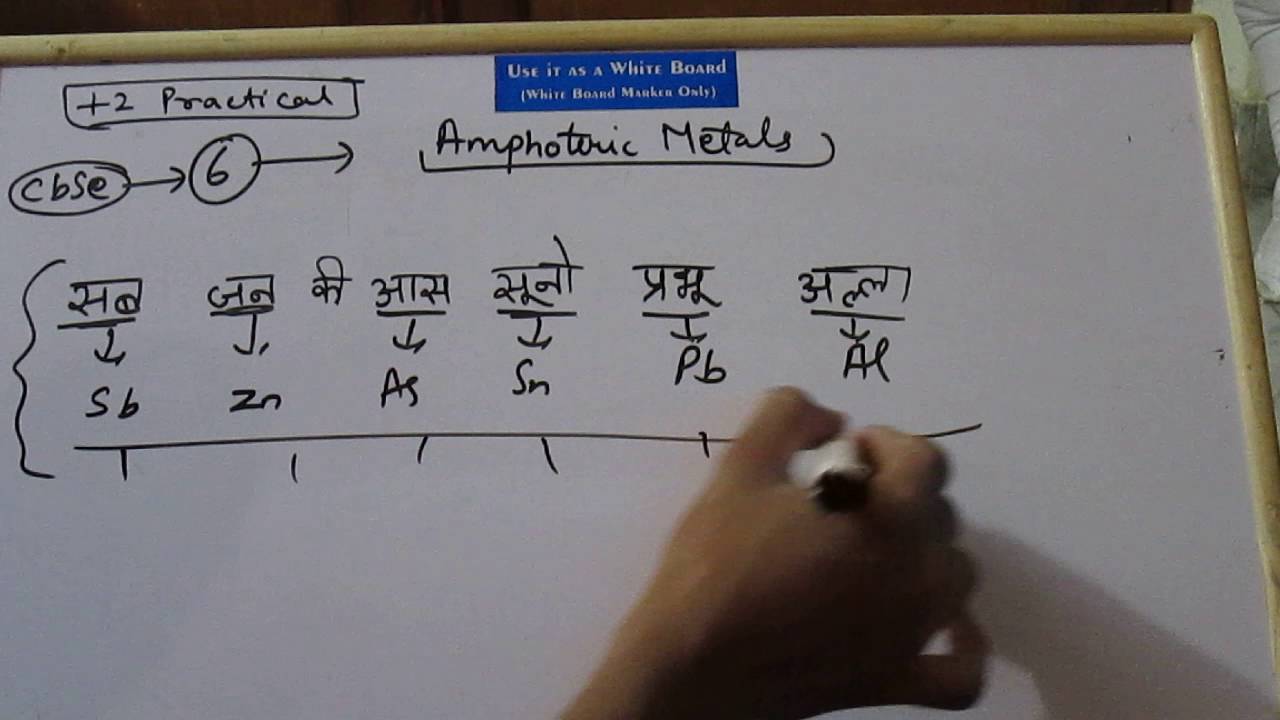 USE IT AS A WHITE BOARD
(WHITE BOARD MARKER ONLY)
+2 Practical
Amphoteric Metals
CbSe → 6 →
सब जन की आस सूनो प्रभू अल्ला
Sb Zn As Sn Pb Al